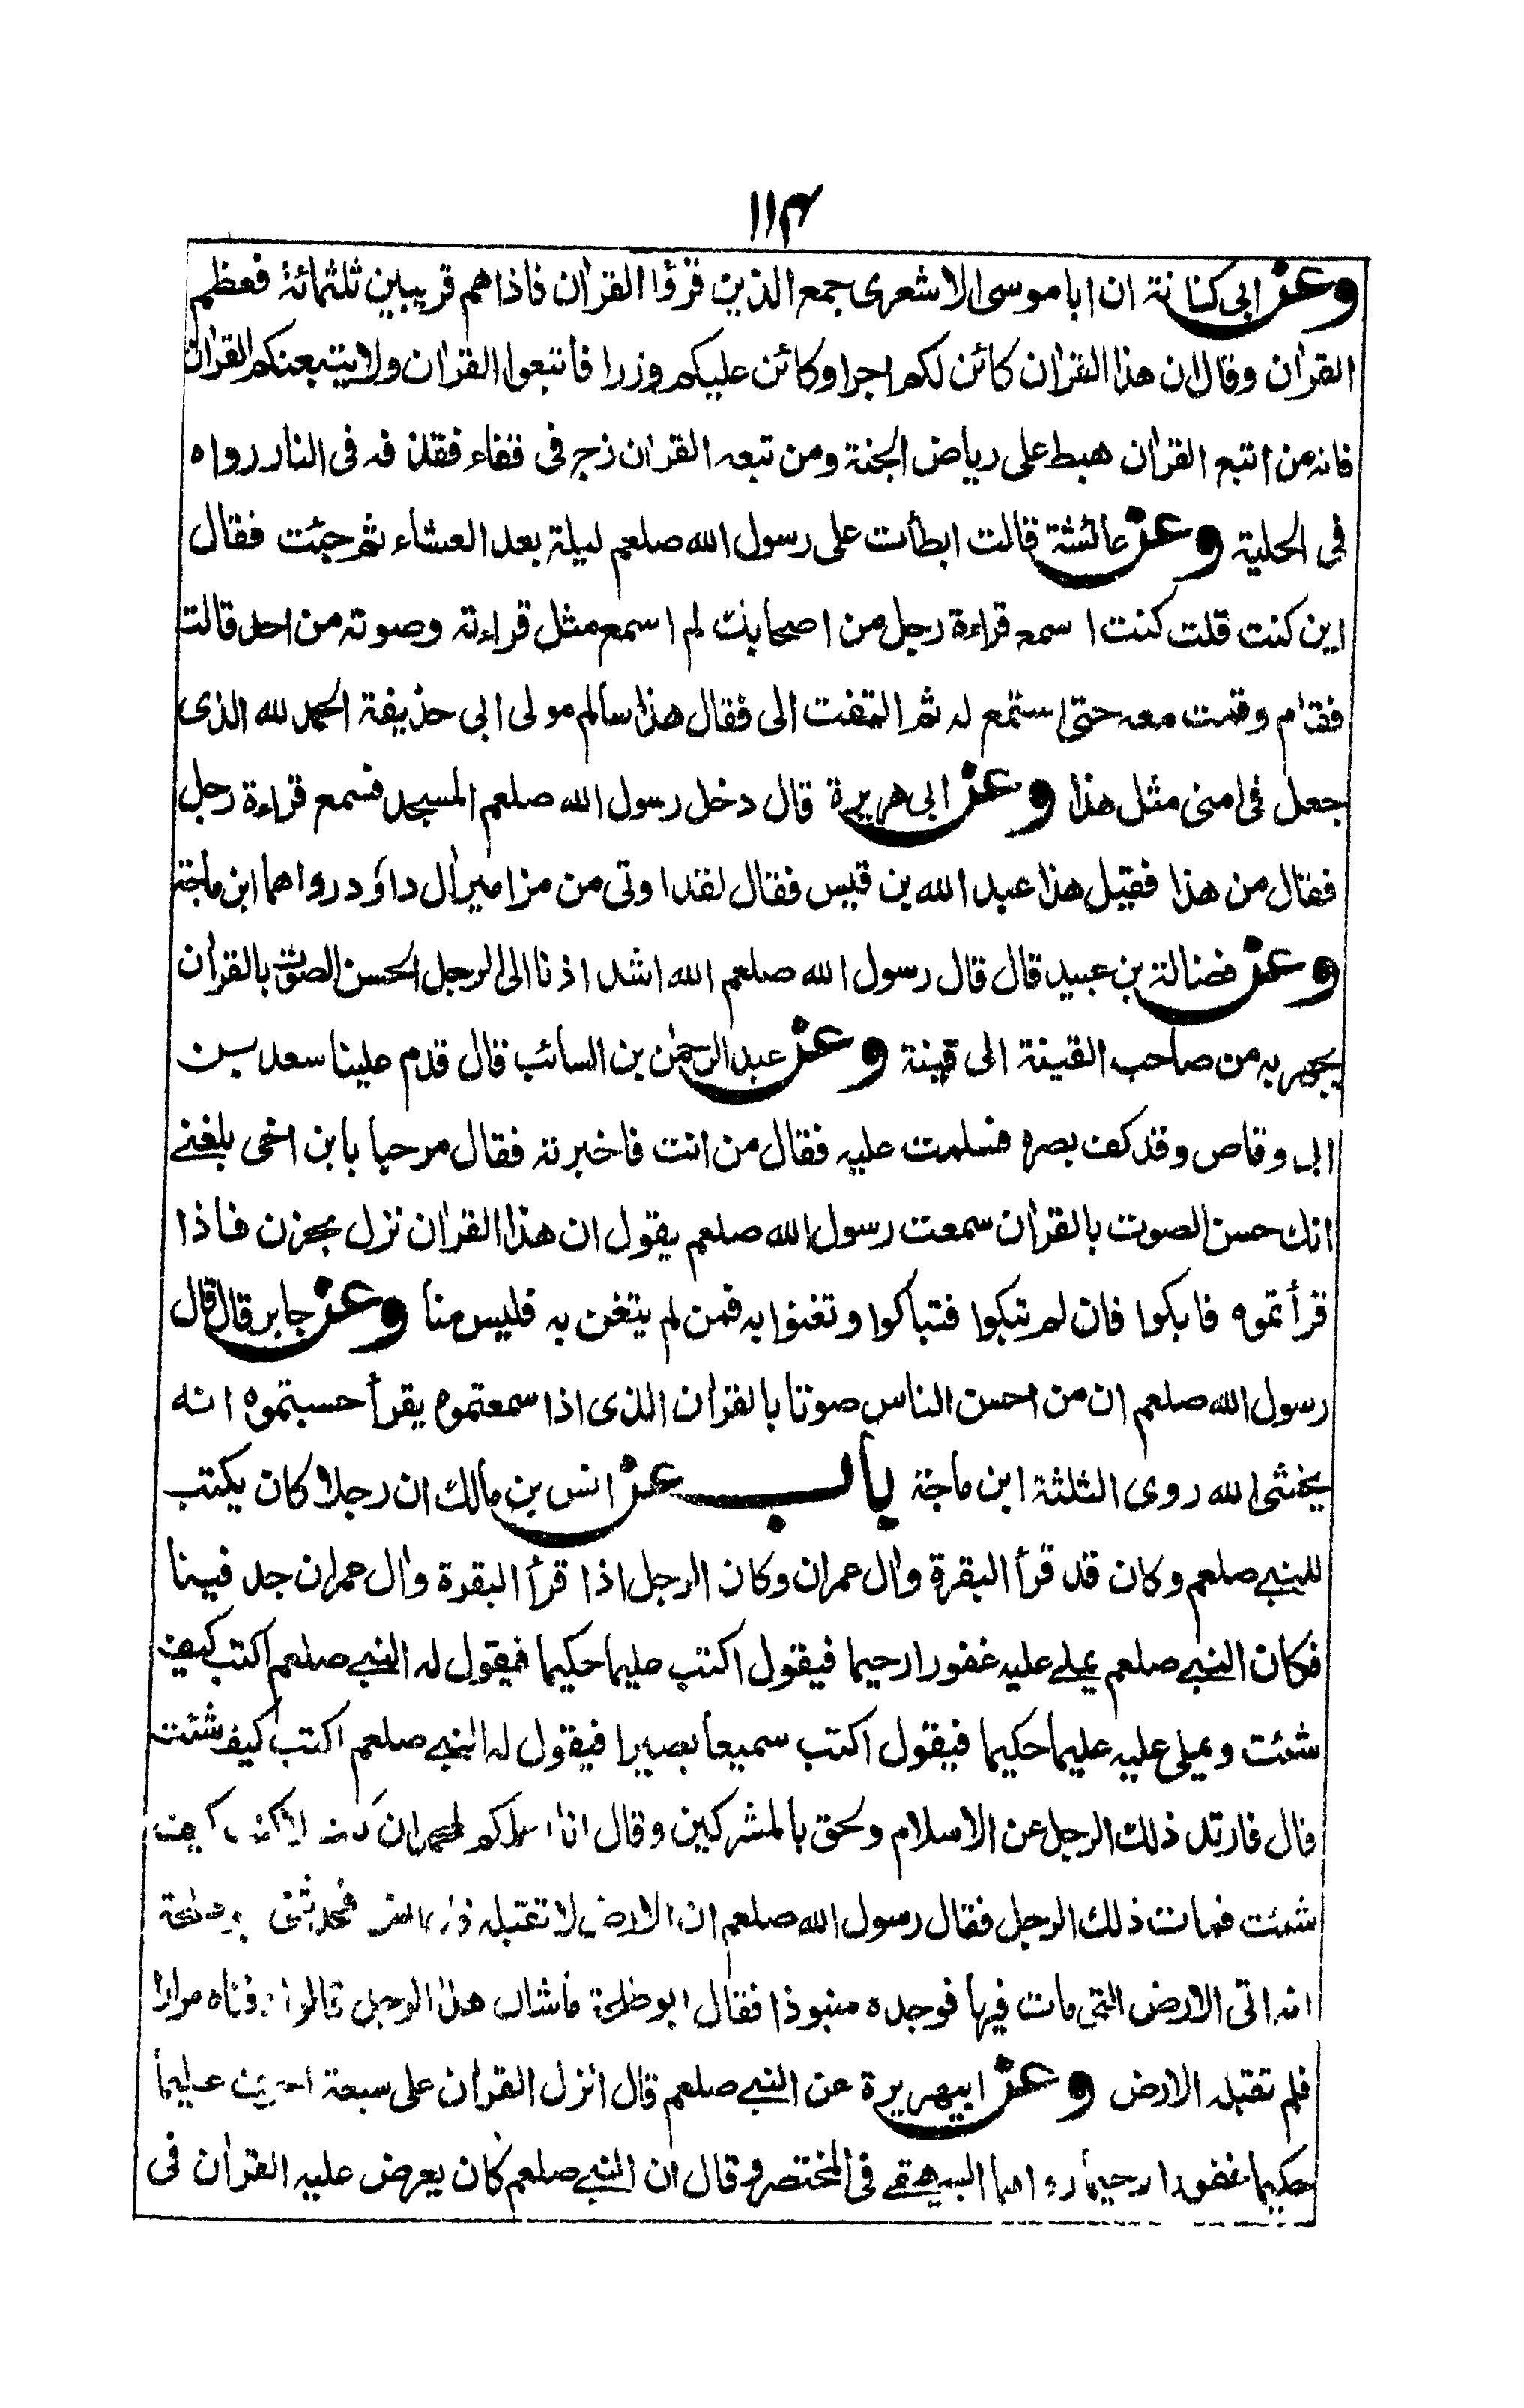 ١١٣
وعن ابى كنانة ان ابا موسى الاشعرى جمع الذين قرؤا القران فاذا هم قريبين ثلثمائة فعظم
القران وقال ان هذا القران كائن لكم اجرا وكائن عليكم وزرا فاتبعوا القران ولا يتبعنكم القران
فانه من اتبع القران هبط على رياض الجنة ومن تبعه القران زج فى قفاء فقذ فه فى النار رواه
فى الحلية وعن عائشة قالت ابطأت على رسول الله صلعم ليلة بعد العشاء ثم جئت فقال
اين كنت قلت كنت اسمع قراءة رجل من اصحابك لم اسمع مثل قراءته وصوته من احد قالت
فقام وقمت معه حتى استمع له ثم التفت الى فقال هذا سالم مولى ابى حذيفة الحمد لله الذى
جعل فى امتى مثل هذا وعن ابى هريرة قال دخل رسول الله صلعم المسجد فسمع قراءة رجل
فقال من هذا فقيل هذا عبد الله بن قيس فقال لقد اوتى من مزامير ال داؤد رواهما ابن ماجة
وعن فضالة بن عبيد قال قال رسول الله صلعم الله اشد اذنا الى الرجل الحسن الصوت بالقران
يجهر به من صاحب القينة الى قينة وعن عبد الرحمٰن بن السائب قال قدم علينا سعد بن
ابى وقاص وقد كف بصره فسلمت عليه فقال من انت فاخبرته فقال مرحبا بابن اخى بلغنے
انك حسن الصوت بالقران سمعت رسول الله صلعم يقول ان هذا القران نزل بحزن فاذا
قرأتموه فابكوا فان لم تبكوا فتباكوا وتغنوا به فمن لم يتغن به فليس منا وعن جابر قال قال
رسول الله صلعم ان من احسن الناس صوتا بالقران الذى اذا سمعتموه يقرأ حسبتموه انه
يخشى الله روى الثلثة ابن ماجة باب عن انس بن مالك ان رجلا كان يكتب
للنبے صلعم وكان قد قرأ البقرة وال عمران وكان الرجل اذا قرأ البقرة وال عمران جد فينا
فكان النبے صلعم يملے عليه غفورا رحيما فيقول اكتب عليما حكيما فيقول له النبے صلعم اكتب كيف
شئت ويملى عليه عليما حكيما فيقول اكتب سميعا بصيرا فيقول له النبے صلعم اكتب كيف شئت
قال فارتد ذلك الرجل عن الاسلام ولحق بالمشركين وقال انا
شئت فمات ذلك الرجل فقال رسول الله صلعم ان الارض لا تقبله فحدثنى
انه اتى الارض التى مات فيها فوجده منبوذا فقال ابو طلحة ماشان هذا الرجل قالوا دفناه مرارا
فلم تقبله الارض وعن ابيهريرة عن النبے صلعم قال انزل القران على سبعة احرف عليما
حكيما غفورا رحيما رواهما البيهقے فى المختصر وقال ان النبے صلعم كان يعرض عليه القران فى